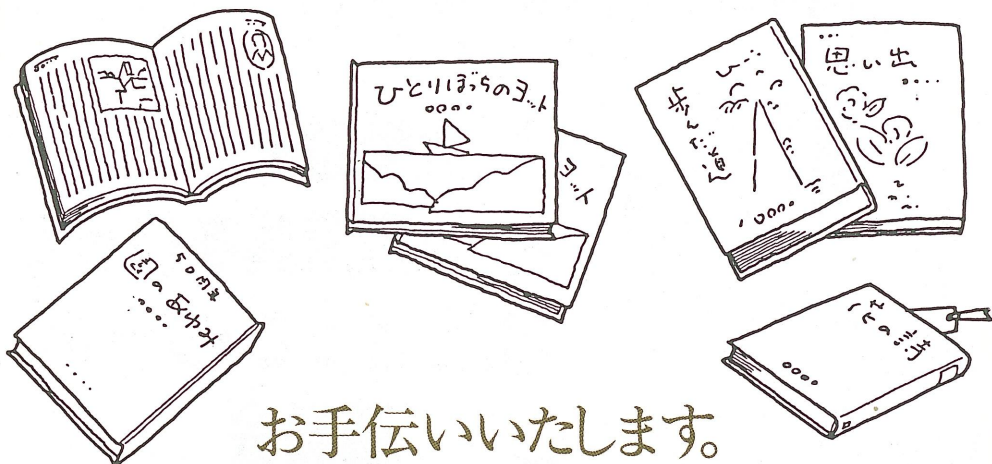 ひとりぼっちのヨット
ヨット
歩んだ道
思い出
50周年
園のあゆみ
花の詩
お手伝いいたします。